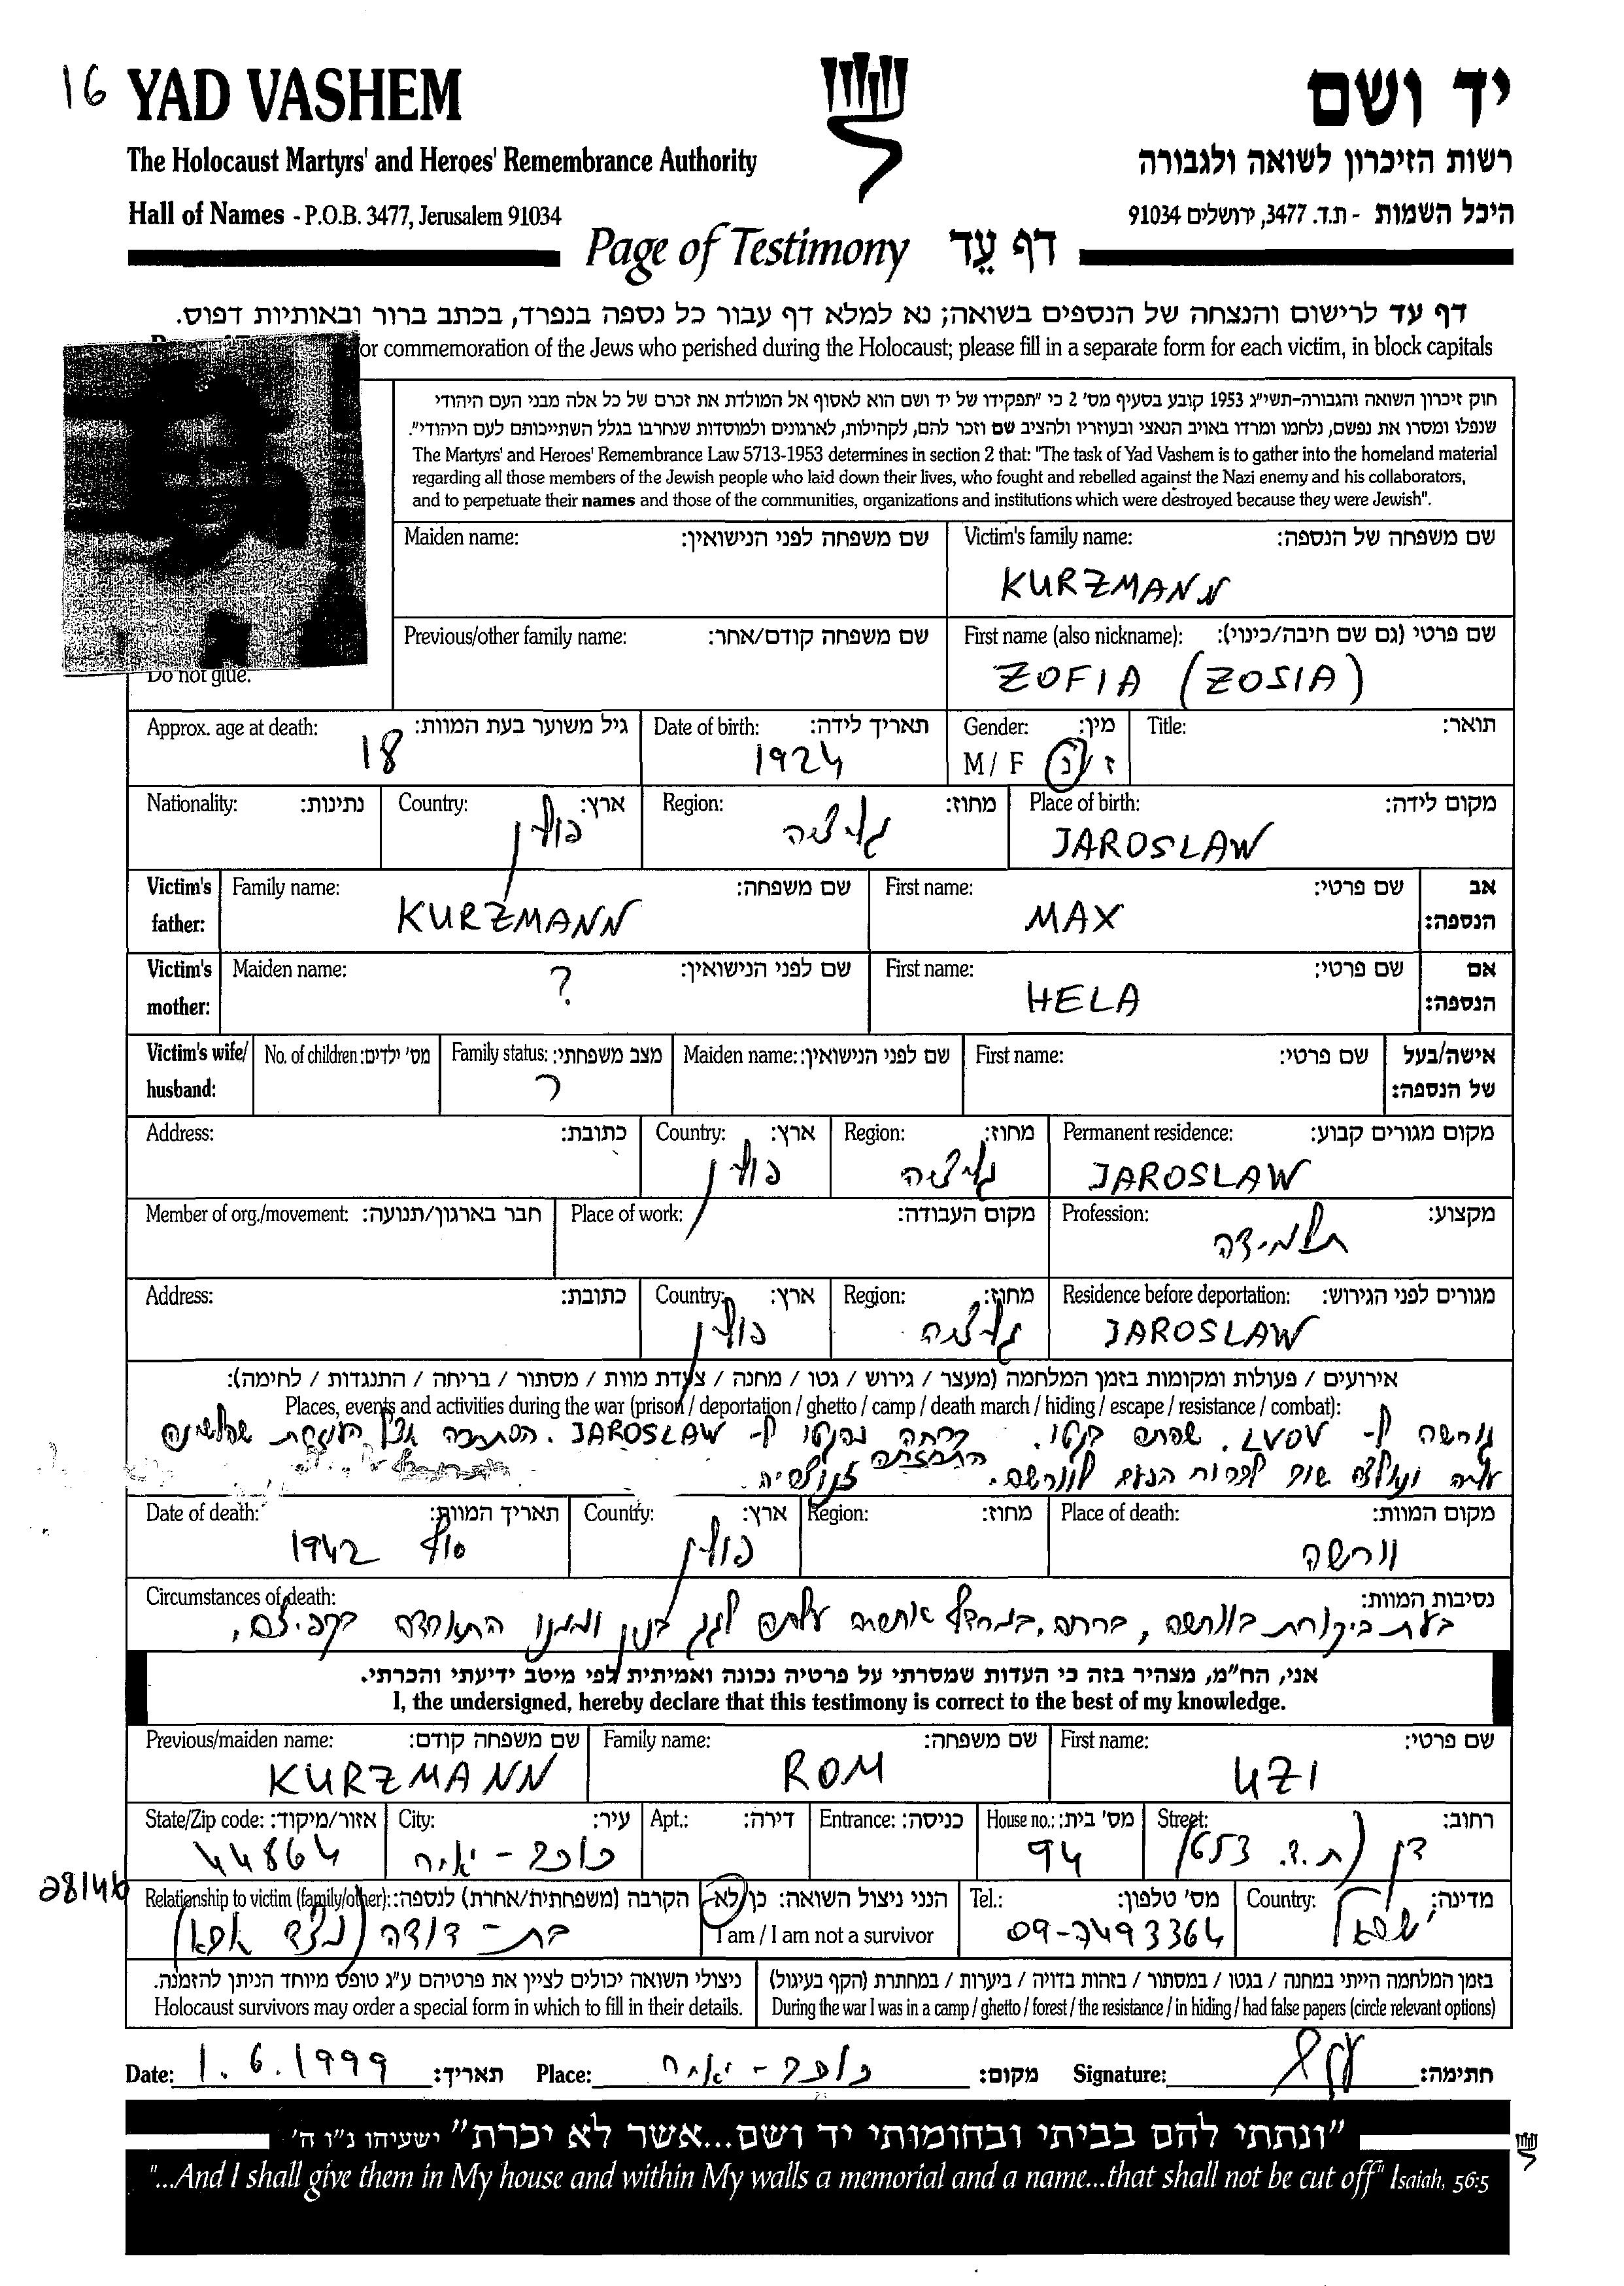 16 YAD VASHEM יד ושם
The Holocaust Martyrs' and Heroes' Remembrance Authority רשות הזיכרון לשואה ולגבורה
Hall of Names - P.O.B. 3477, Jerusalem 91034 היכל השמות - ת.ד. 3477, ירושלים 91034
Page of Testimony דף עֵד
דף עד לרישום והנצחה של הנספים בשואה; נא למלא דף עבור כל נספה בנפרד, בכתב ברור ובאותיות דפוס.
or commemoration of the Jews who perished during the Holocaust; please fill in a separate form for each victim, in block capitals
חוק זיכרון השואה והגבורה-תשי"ג 1953 קובע בסעיף מס' 2 כי "תפקידו של יד ושם הוא לאסוף אל המולדת את זכרם של כל אלה מבני העם היהודי
שנפלו ומסרו את נפשם, נלחמו ומרדו באויב הנאצי ובעוזריו ולהציב שם וזכר להם, לקהילות, לארגונים ולמוסדות שנחרבו בגלל השתייכותם לעם היהודי".
The Martyrs' and Heroes' Remembrance Law 5713-1953 determines in section 2 that: "The task of Yad Vashem is to gather into the homeland material
regarding all those members of the Jewish people who laid down their lives, who fought and rebelled against the Nazi enemy and his collaborators,
and to perpetuate their names and those of the communities, organizations and institutions which were destroyed because they were Jewish".
Maiden name: שם משפחה לפני הנישואין: Victim's family name: שם משפחה של הנספה:
KURZMANN
Previous/other family name: שם משפחה קודם/אחר: First name (also nickname): שם פרטי (גם שם חיבה/כינוי):
ZOFIA (ZOSIA)
Do not glue.
Approx. age at death: גיל משוער בעת המוות: Date of birth: תאריך לידה: Gender: מין: Title: תואר:
18 1924 M / F ז / נ
Nationality: נתינות: Country: ארץ: Region: מחוז: Place of birth: מקום לידה:
פולין גליציה JAROSLAW
Victim's Family name: שם משפחה: First name: שם פרטי: אב
father: KURZMANN MAX הנספה:
Victim's Maiden name: שם לפני הנישואין: First name: שם פרטי: אם
mother: ? HELA הנספה:
Victim's wife/ No. of children: מס' ילדים: Family status: מצב משפחתי: Maiden name: שם לפני הנישואין: First name: שם פרטי: אישה/בעל
husband: ר של הנספה:
Address: כתובת: Country: ארץ: Region: מחוז: Permanent residence: מקום מגורים קבוע:
פולין גליציה JAROSLAW
Member of org./movement: חבר בארגון/תנועה: Place of work: מקום העבודה: Profession: מקצוע:
תלמידה
Address: כתובת: Country: ארץ: Region: מחוז: Residence before deportation: מגורים לפני הגירוש:
פולין גליציה JAROSLAW
אירועים / פעולות ומקומות בזמן המלחמה (מעצר / גירוש / גטו / מחנה / צעדת מוות / מסתור / בריחה / התנגדות / לחימה):
Places, events and activities during the war (prison / deportation / ghetto / camp / death march / hiding / escape / resistance / combat):
גורשה ל- LVOV. שהתה בגטו. ברחה מהגטו ל- JAROSLAW. הסתתרה אצל שהלשינה
עליה ונאלצה שוב לברוח הפעם לוורשה.
Date of death: תאריך המוות: Country: ארץ: Region: מחוז: Place of death: מקום המוות:
סוף 1942 פולין וורשה
Circumstances of death: נסיבות המוות:
בעת ביקורת בוורשה, ברחה, לגג בנין וממנו התאבדה בקפיצה,
אני, הח"מ, מצהיר בזה כי העדות שמסרתי על פרטיה נכונה ואמיתית לפי מיטב ידיעתי והכרתי.
I, the undersigned, hereby declare that this testimony is correct to the best of my knowledge.
Previous/maiden name: שם משפחה קודם: Family name: שם משפחה: First name: שם פרטי:
KURZMANN ROM UZI
State/Zip code: אזור/מיקוד: City: עיר: Apt.: דירה: Entrance: כניסה: House no.: מס' בית: Street: רחוב:
44864 כוכב-יאיר 94 דן (ת.ד. 653)
Relationship to victim (family/other): הקרבה (משפחתית/אחרת) לנספה: הנני ניצול השואה: כן/לא Tel.: מס' טלפון: Country: מדינה:
בת-דודה (מצד אבא) I am / I am not a survivor 09-7493364 ישראל
ניצולי השואה יכולים לציין את פרטיהם ע"ג טופס מיוחד הניתן להזמנה. בזמן המלחמה הייתי במחנה / בגטו / במסתור / בזהות בדויה / ביערות / במחתרת (הקף בעיגול)
Holocaust survivors may order a special form in which to fill in their details. During the war I was in a camp / ghetto / forest / the resistance / in hiding / had false papers (circle relevant options)
Date: 1.6.1999 תאריך: Place: כוכב-יאיר מקום: Signature: חתימה:
"ונתתי להם בביתי ובחומותי יד ושם...אשר לא יכרת" ישעיהו נ"ו ה'
"...And I shall give them in My house and within My walls a memorial and a name...that shall not be cut off" Isaiah, 56:5